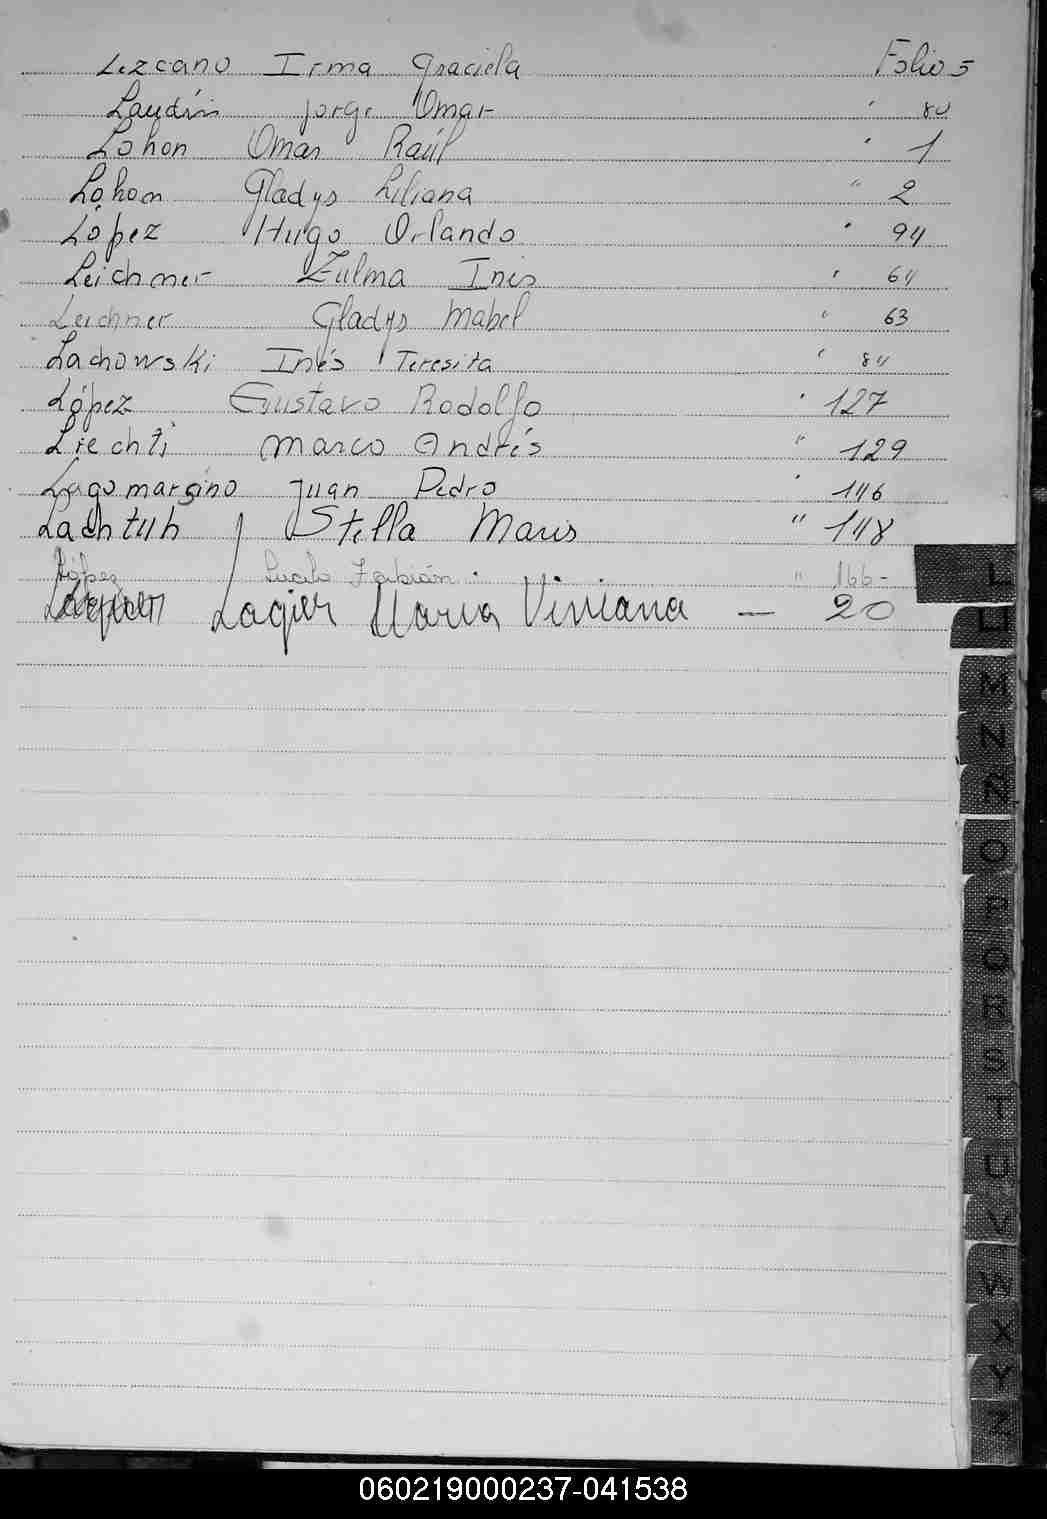 Lezcano Irma Graciela Folio 5
Landin Jorge Omar " 80
Lohon Omar Raúl " 1
Lohon Gladys Liliana " 2
López Hugo Orlando " 94
Leichner Zulma Inés " 64
Leichner Gladys Mabel " 63
Lachowski Inés Teresita " 84
López Gustavo Rodolfo " 127
Liechti Marco Andrés " 129
Lagomarsino Juan Pedro " 146
Stella Maris " 148
López Fabián " 166-
Lagier Maria Viviana — 20
L
LL
M
N
Ñ
O
P
Q
R
S
T
U
V
W
X
Y
Z
060219000237-041538